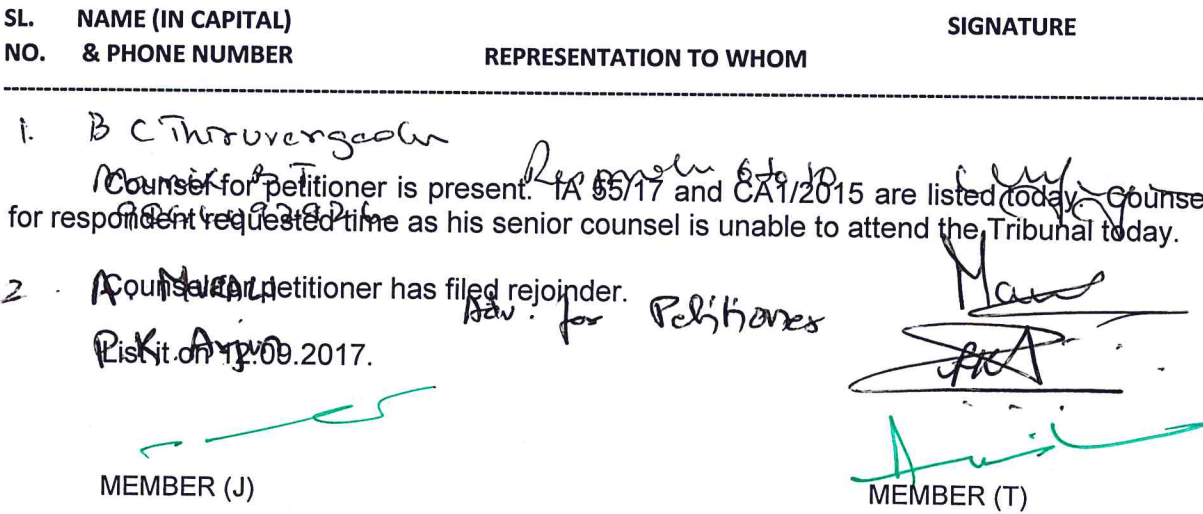 SL. NAME (IN CAPITAL) SIGNATURE
NO. & PHONE NUMBER REPRESENTATION TO WHOM
1. B C
Counsel for petitioner is present. IA 55/17 and CA1/2015 are listed today. Counse
for respondent requested time as his senior counsel is unable to attend the Tribunal today.
2. A.
Counsel for petitioner has filed rejoinder.
Adv. for Petitioner
P.K. Arjun
List it on 12.09.2017.
MEMBER (J) MEMBER (T)